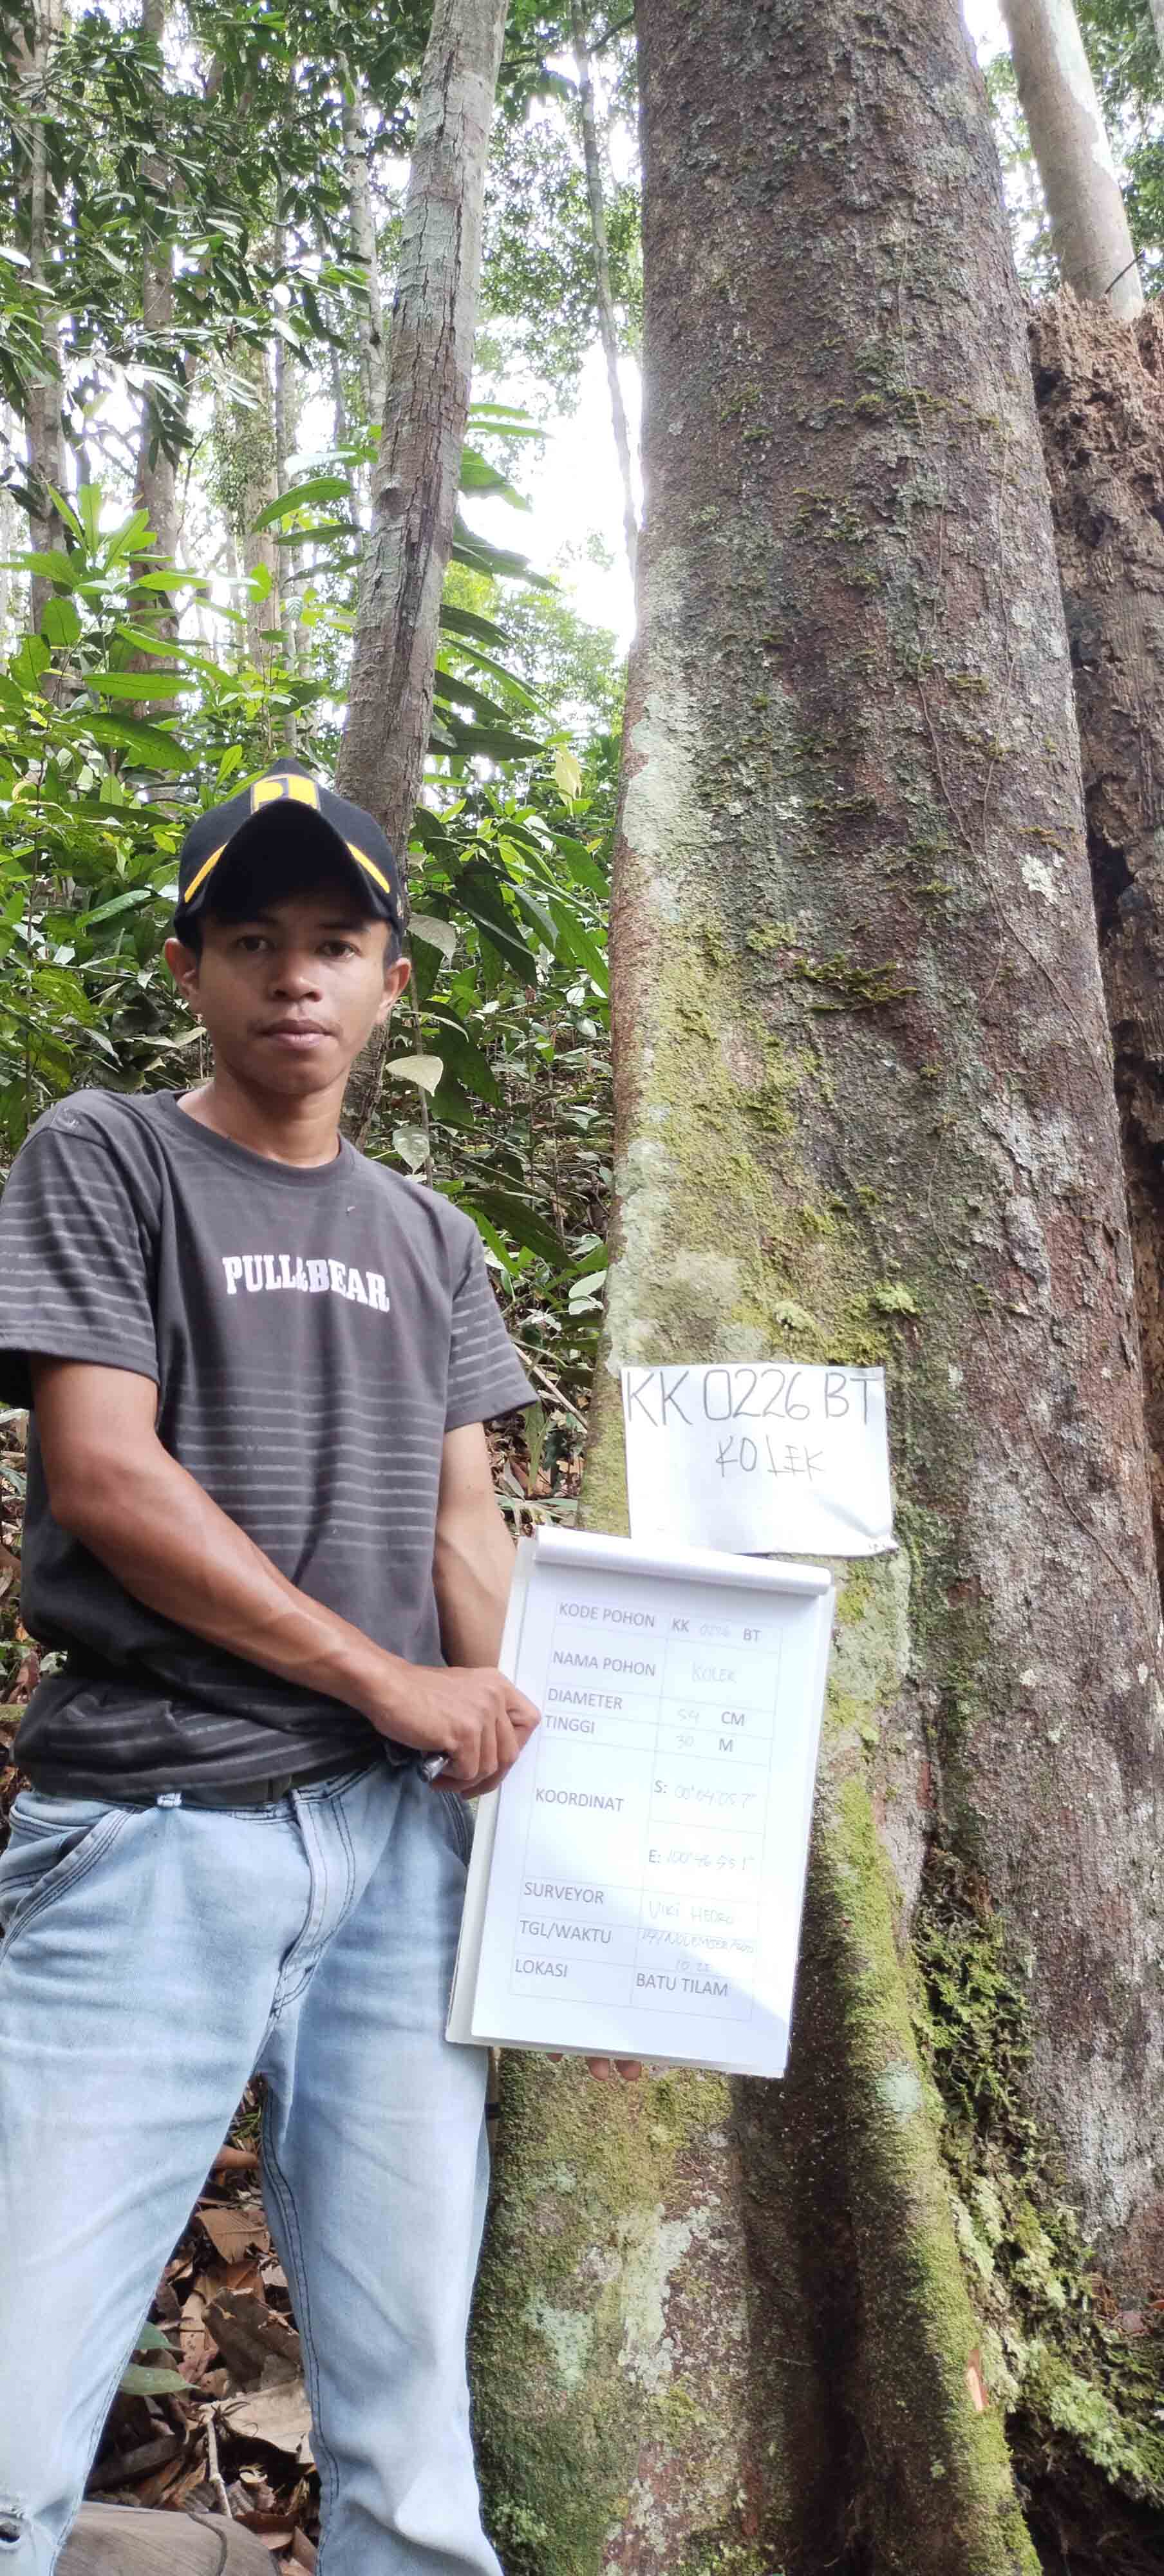 PULL&BEAR
KK 0226 BT
KOLEK
KODE POHON KK 0226 BT
NAMA POHON KOLEK
DIAMETER 54 CM
TINGGI 30 M
KOORDINAT
S: 00°04'057"
E: 100°46'551"
SURVEYOR VIKI
TGL/WAKTU 14/NOVEMBER
LOKASI BATU TILAM